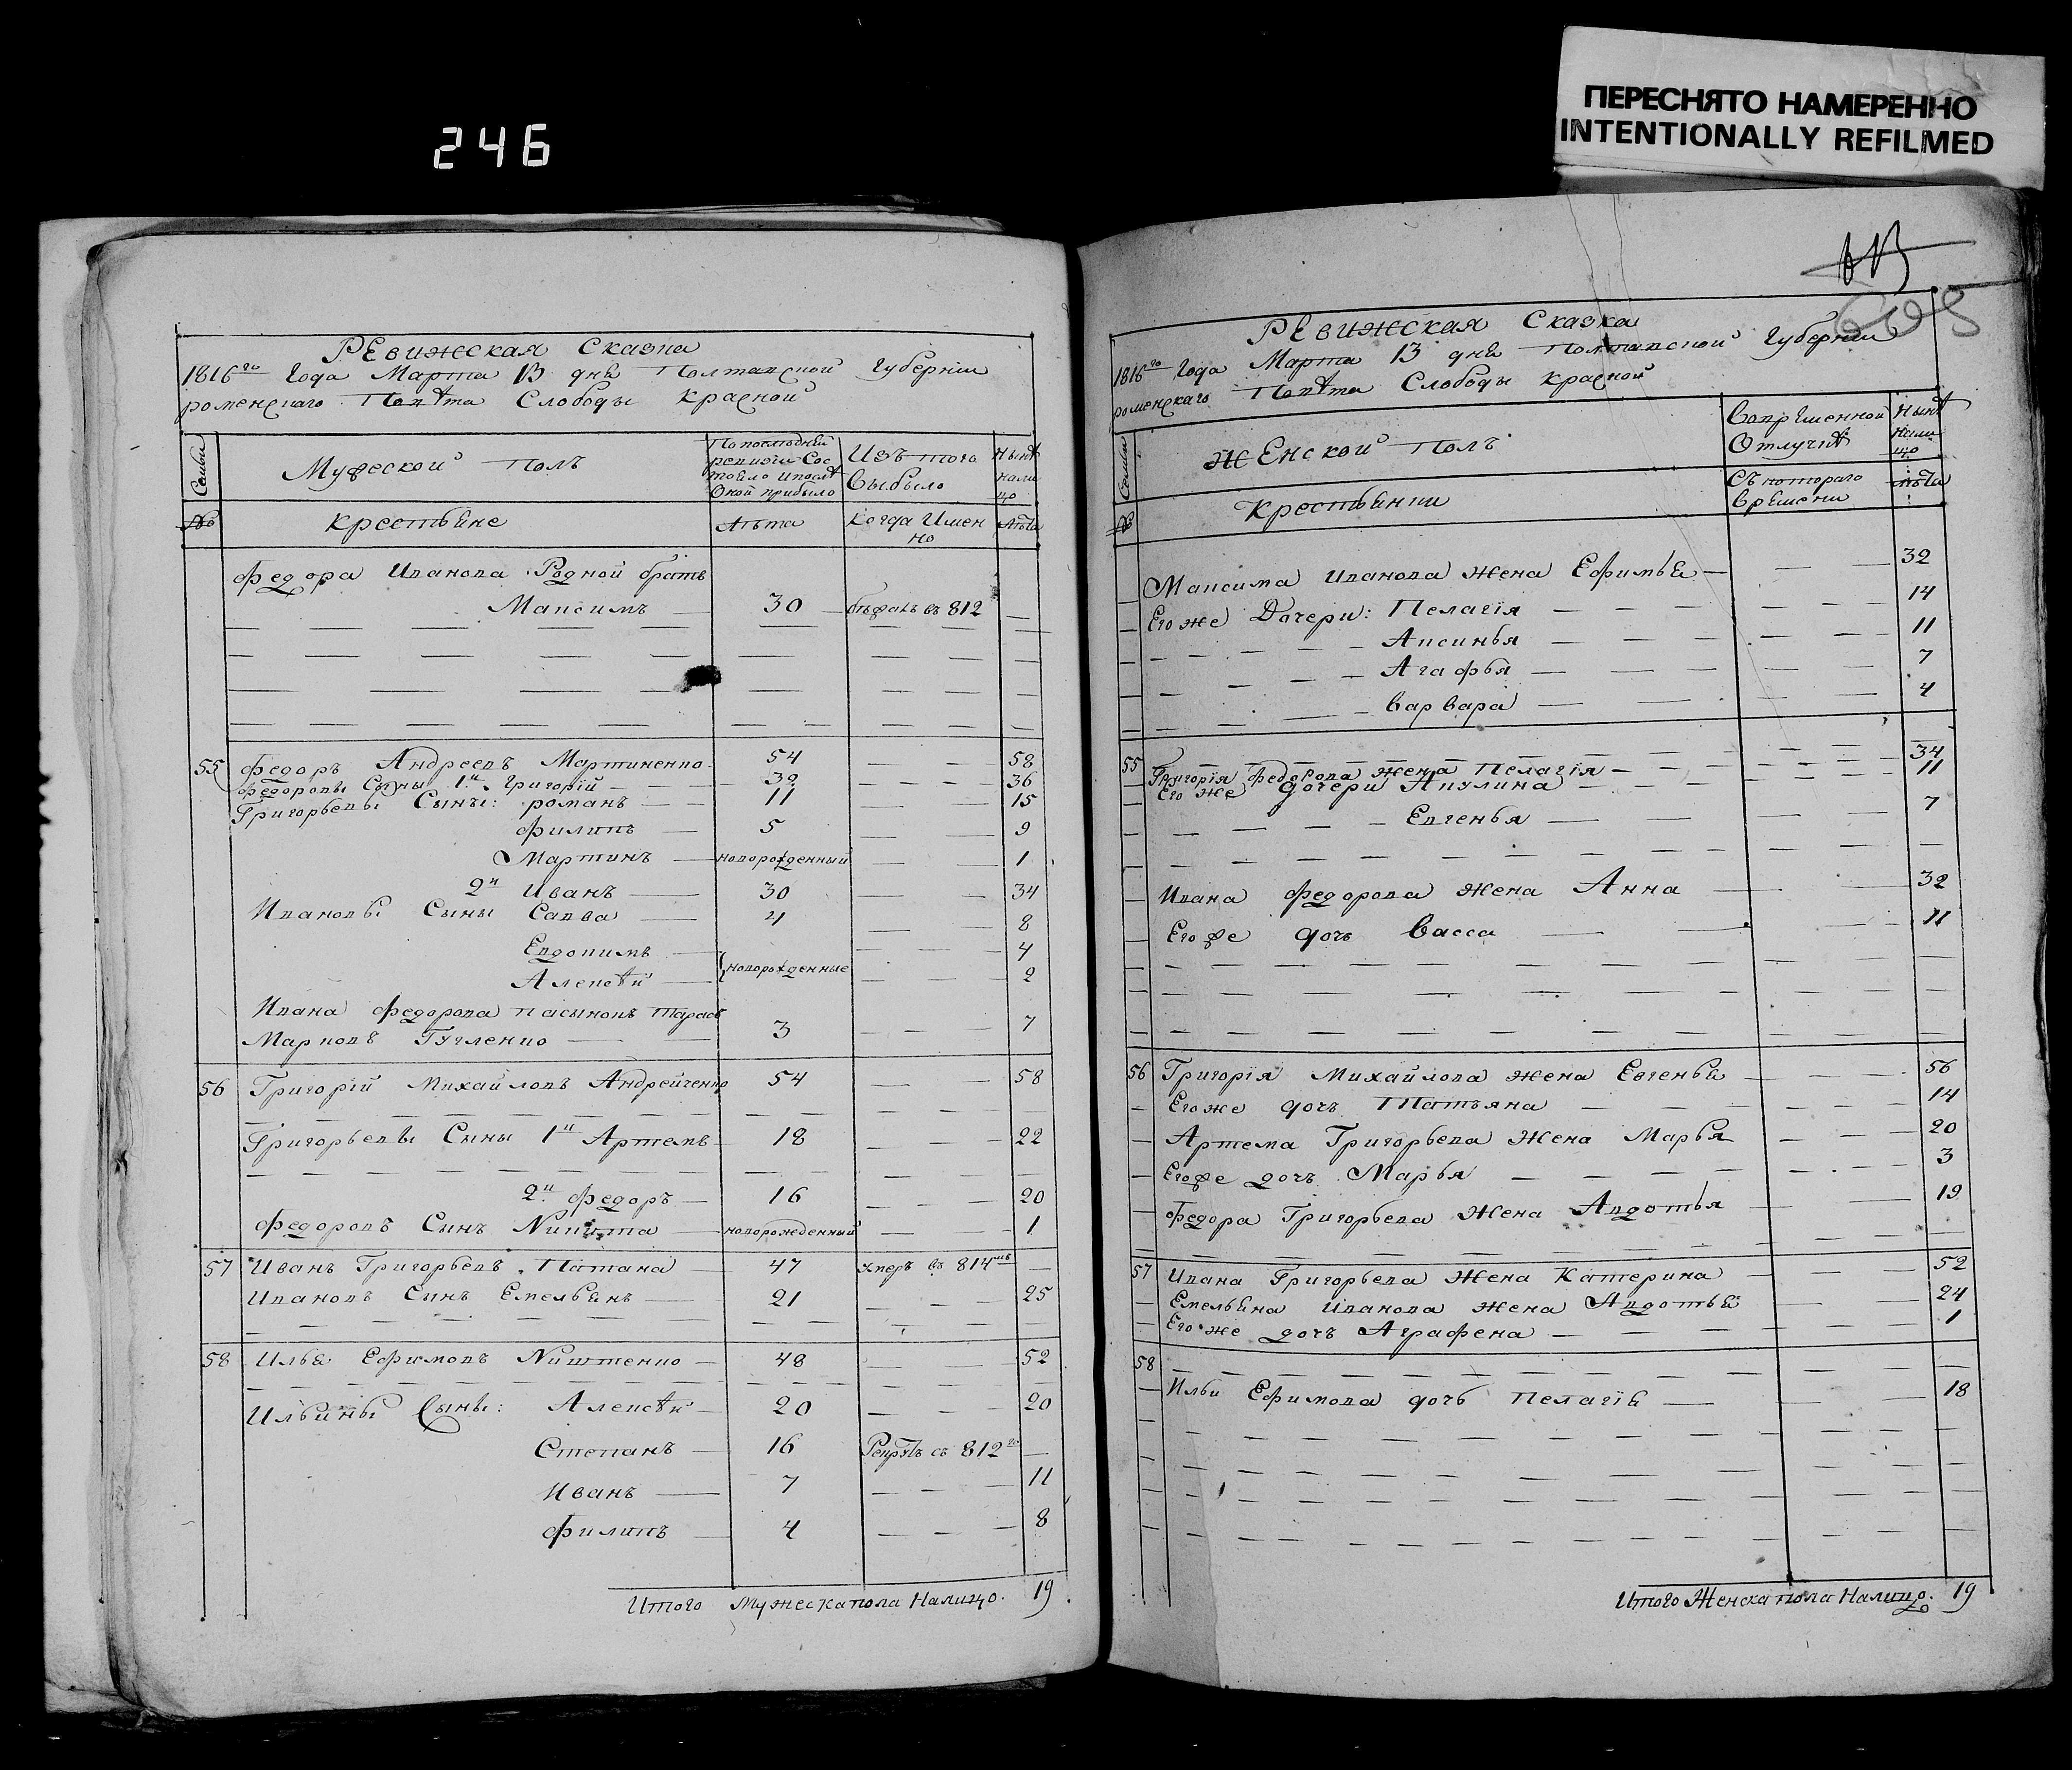 246
ПЕРЕСНЯТО НАМЕРЕННО
INTENTIONALLY REFILMED
РЕвижская Сказка
1816го Года Марта 13 дня Полтавской Губерніи
роменскаго Повѣта Слободы Красной
Семьи
Мужеской Полъ
По послѣдней ревизіи Состояло и послѣ Оной прибыло
Изъ того выбыло
Нынѣ нали цо
№
крестьяне
лѣта
Когда Имен но
лѣта
федора Иванова Родной братъ
Максимъ 30 бѣжалъ въ 812
55 федоръ Андреевъ Мартиненко 54 58
федоровы Сыны 1й Григорій 32 36
Григорьевы Сыны: романъ 11 15
филипъ 5 9
Мартинъ новорожденный 1
2й Иванъ 30 34
Ивановы Сыны Савва 4 8
Евдокимъ 4
новорожденные
Алексѣй 2
Ивана федорова пасынокъ Тарасъ
Марковъ Гучленко 3 7
56 Григорій Михайловъ Андрейченко 54 58
Григорьевы Сыны 1й Артемъ 18 22
2й федоръ 16 20
федоровъ Сынъ Никита новорожденный 1
57 Иванъ Григорьевъ Патана 47 умеръ въ 814мъ
Ивановъ Сынъ Емельянъ 21 25
58 Илья Ефимовъ Никитенко 48 52
Ильины Сыны: Алексѣй 20 20
Степанъ 16 Рекрутъ съ 812го
Иванъ 7 11
филипъ 4 8
Итого Мужеска пола Налицо. 19.
13
608
РЕвижская Сказка
1816го Года Марта 13 дня Полтавской Губерніи
роменскаго Повѣта Слободы Красной
Семьи
жЕнской Полъ
Вопрѣменной Отлучкѣ
Нынѣ нали цо
№
крестьянки
Съ котораго врѣмени
лѣта
Максима Иванова жена Ефимья 32
Его же Дочери: Пелагія 14
Аксинья 11
Агафья 7
варвара 4
55 Григорія федорова жена Пелагія 34
Его же дочери Акулина 11
Евгенья 7
Ивана федорова жена Анна 32
Его же дочь Васса 11
56 Григорія Михайлова жена Евгенья 56
Его же дочь Татьяна 14
Артема Григорьева жена Марья 20
Его же дочь Марья 3
федора Григорьева жена Авдотья 19
57 Ивана Григорьева жена Катерина 52
Емельяна Иванова жена Авдотья 24
Его же дочь Аграфена 1
58
Ильи Ефимова дочь Пелагія 18
Итого Женска пола Налицо. 19